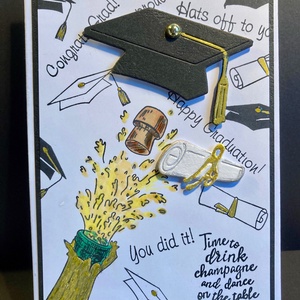 Congrats Grad!
Hats off to yo
Happy Graduation!
You did it!
Time to
drink
champagne
and dance
on the table